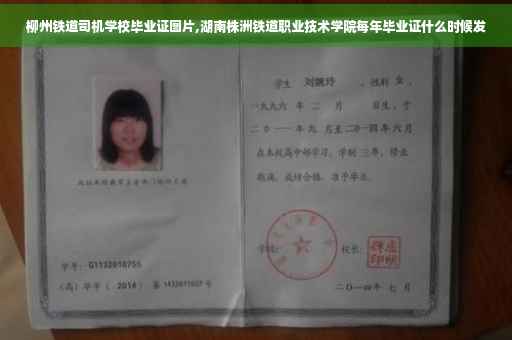 柳州铁道司机学校毕业证图片,湖南株洲铁道职业技术学院每年毕业证什么时候发
学生 刘婉玲 ,性别 女 ,
一九九六 年 二 月 日生,于
二〇一一年 九 月至二〇一四年 六 月
在本校高中部学习,学制 三年,修业
期满,成绩合格,准予毕业。
学校: 校长:
学号: G1132010755
(高)毕字( 2014 )第 1432011027 号
二〇一四年 七 月